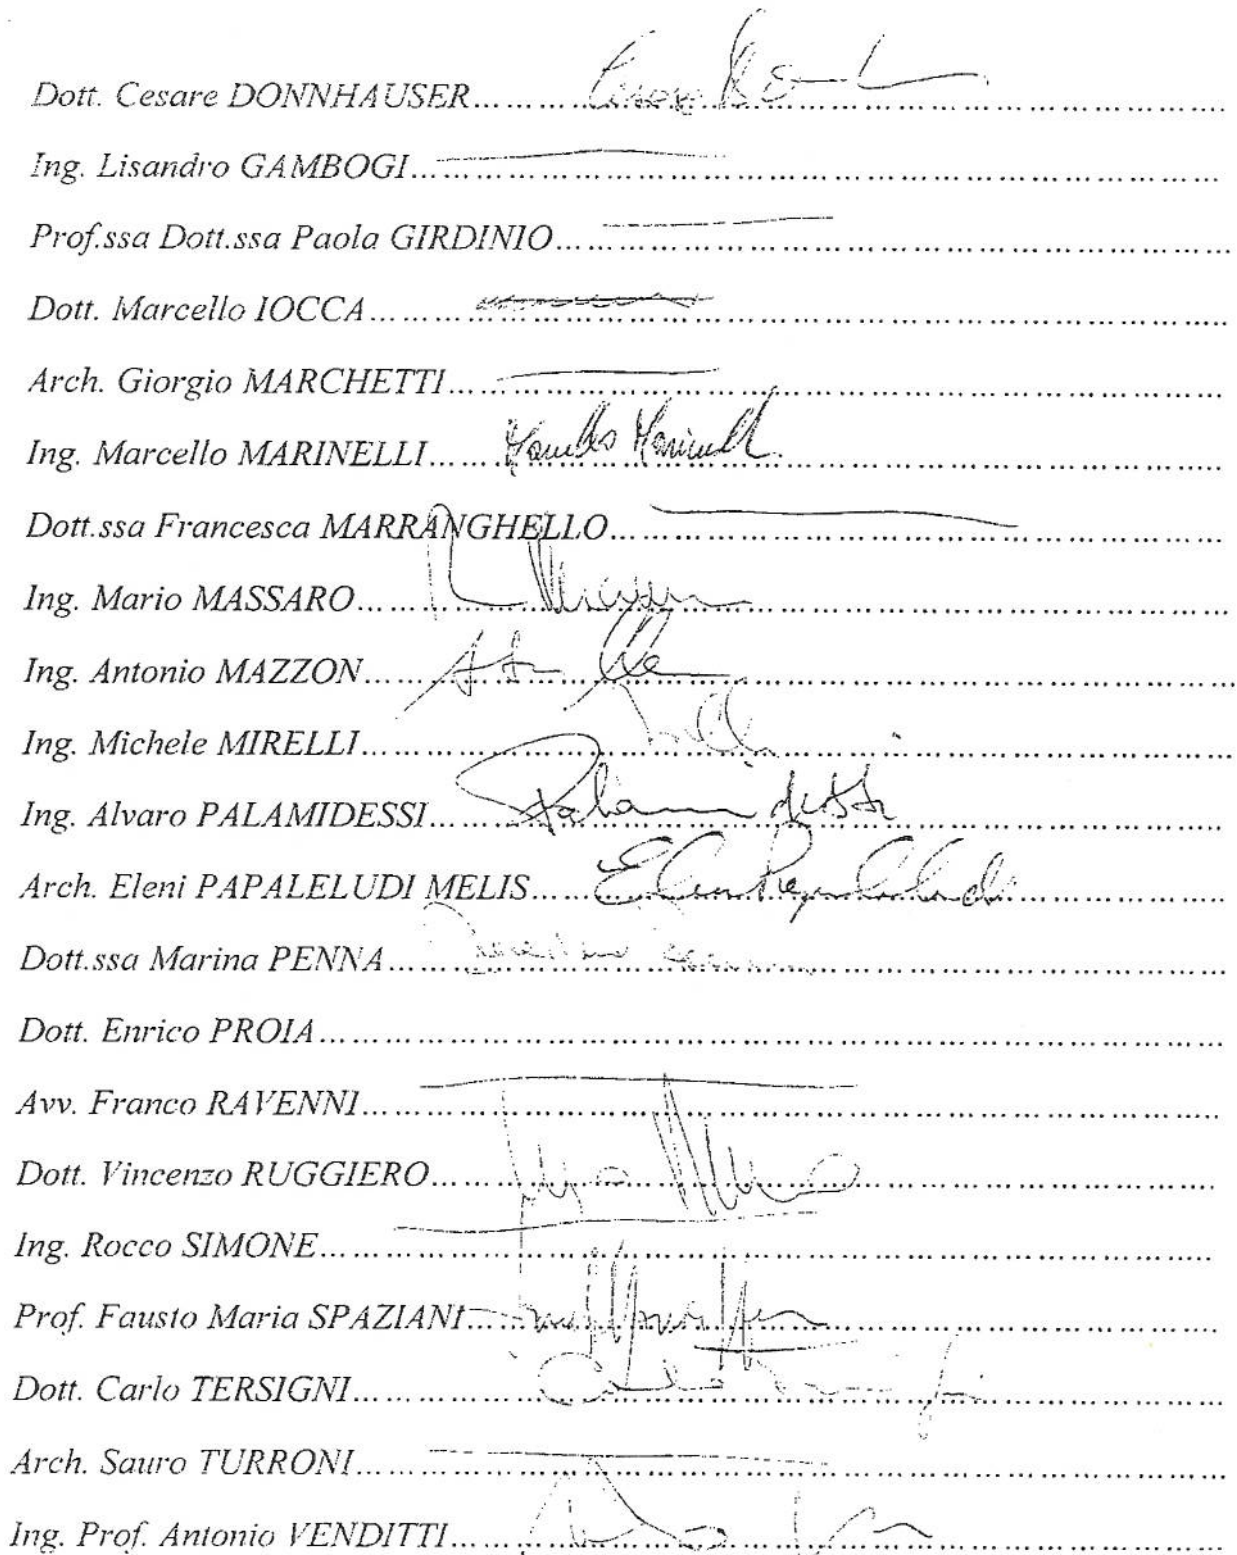 Dott. Cesare DONNHAUSER..............................................................
Ing. Lisandro GAMBOGI..............................................................
Prof.ssa Dott.ssa Paola GIRDINIO..............................................................
Dott. Marcello IOCCA..............................................................
Arch. Giorgio MARCHETTI..............................................................
Ing. Marcello MARINELLI.......Marcello Marinelli..............................................................
Dott.ssa Francesca MARRANGHELLO..............................................................
Ing. Mario MASSARO..............................................................
Ing. Antonio MAZZON..............................................................
Ing. Michele MIRELLI..............................................................
Ing. Alvaro PALAMIDESSI.......Palamidessi..............................................................
Arch. Eleni PAPALELUDI MELIS..............................................................
Dott.ssa Marina PENNA..............................................................
Dott. Enrico PROIA..............................................................
Avv. Franco RAVENNI..............................................................
Dott. Vincenzo RUGGIERO..............................................................
Ing. Rocco SIMONE..............................................................
Prof. Fausto Maria SPAZIANI..............................................................
Dott. Carlo TERSIGNI..............................................................
Arch. Sauro TURRONI..............................................................
Ing. Prof. Antonio VENDITTI..............................................................